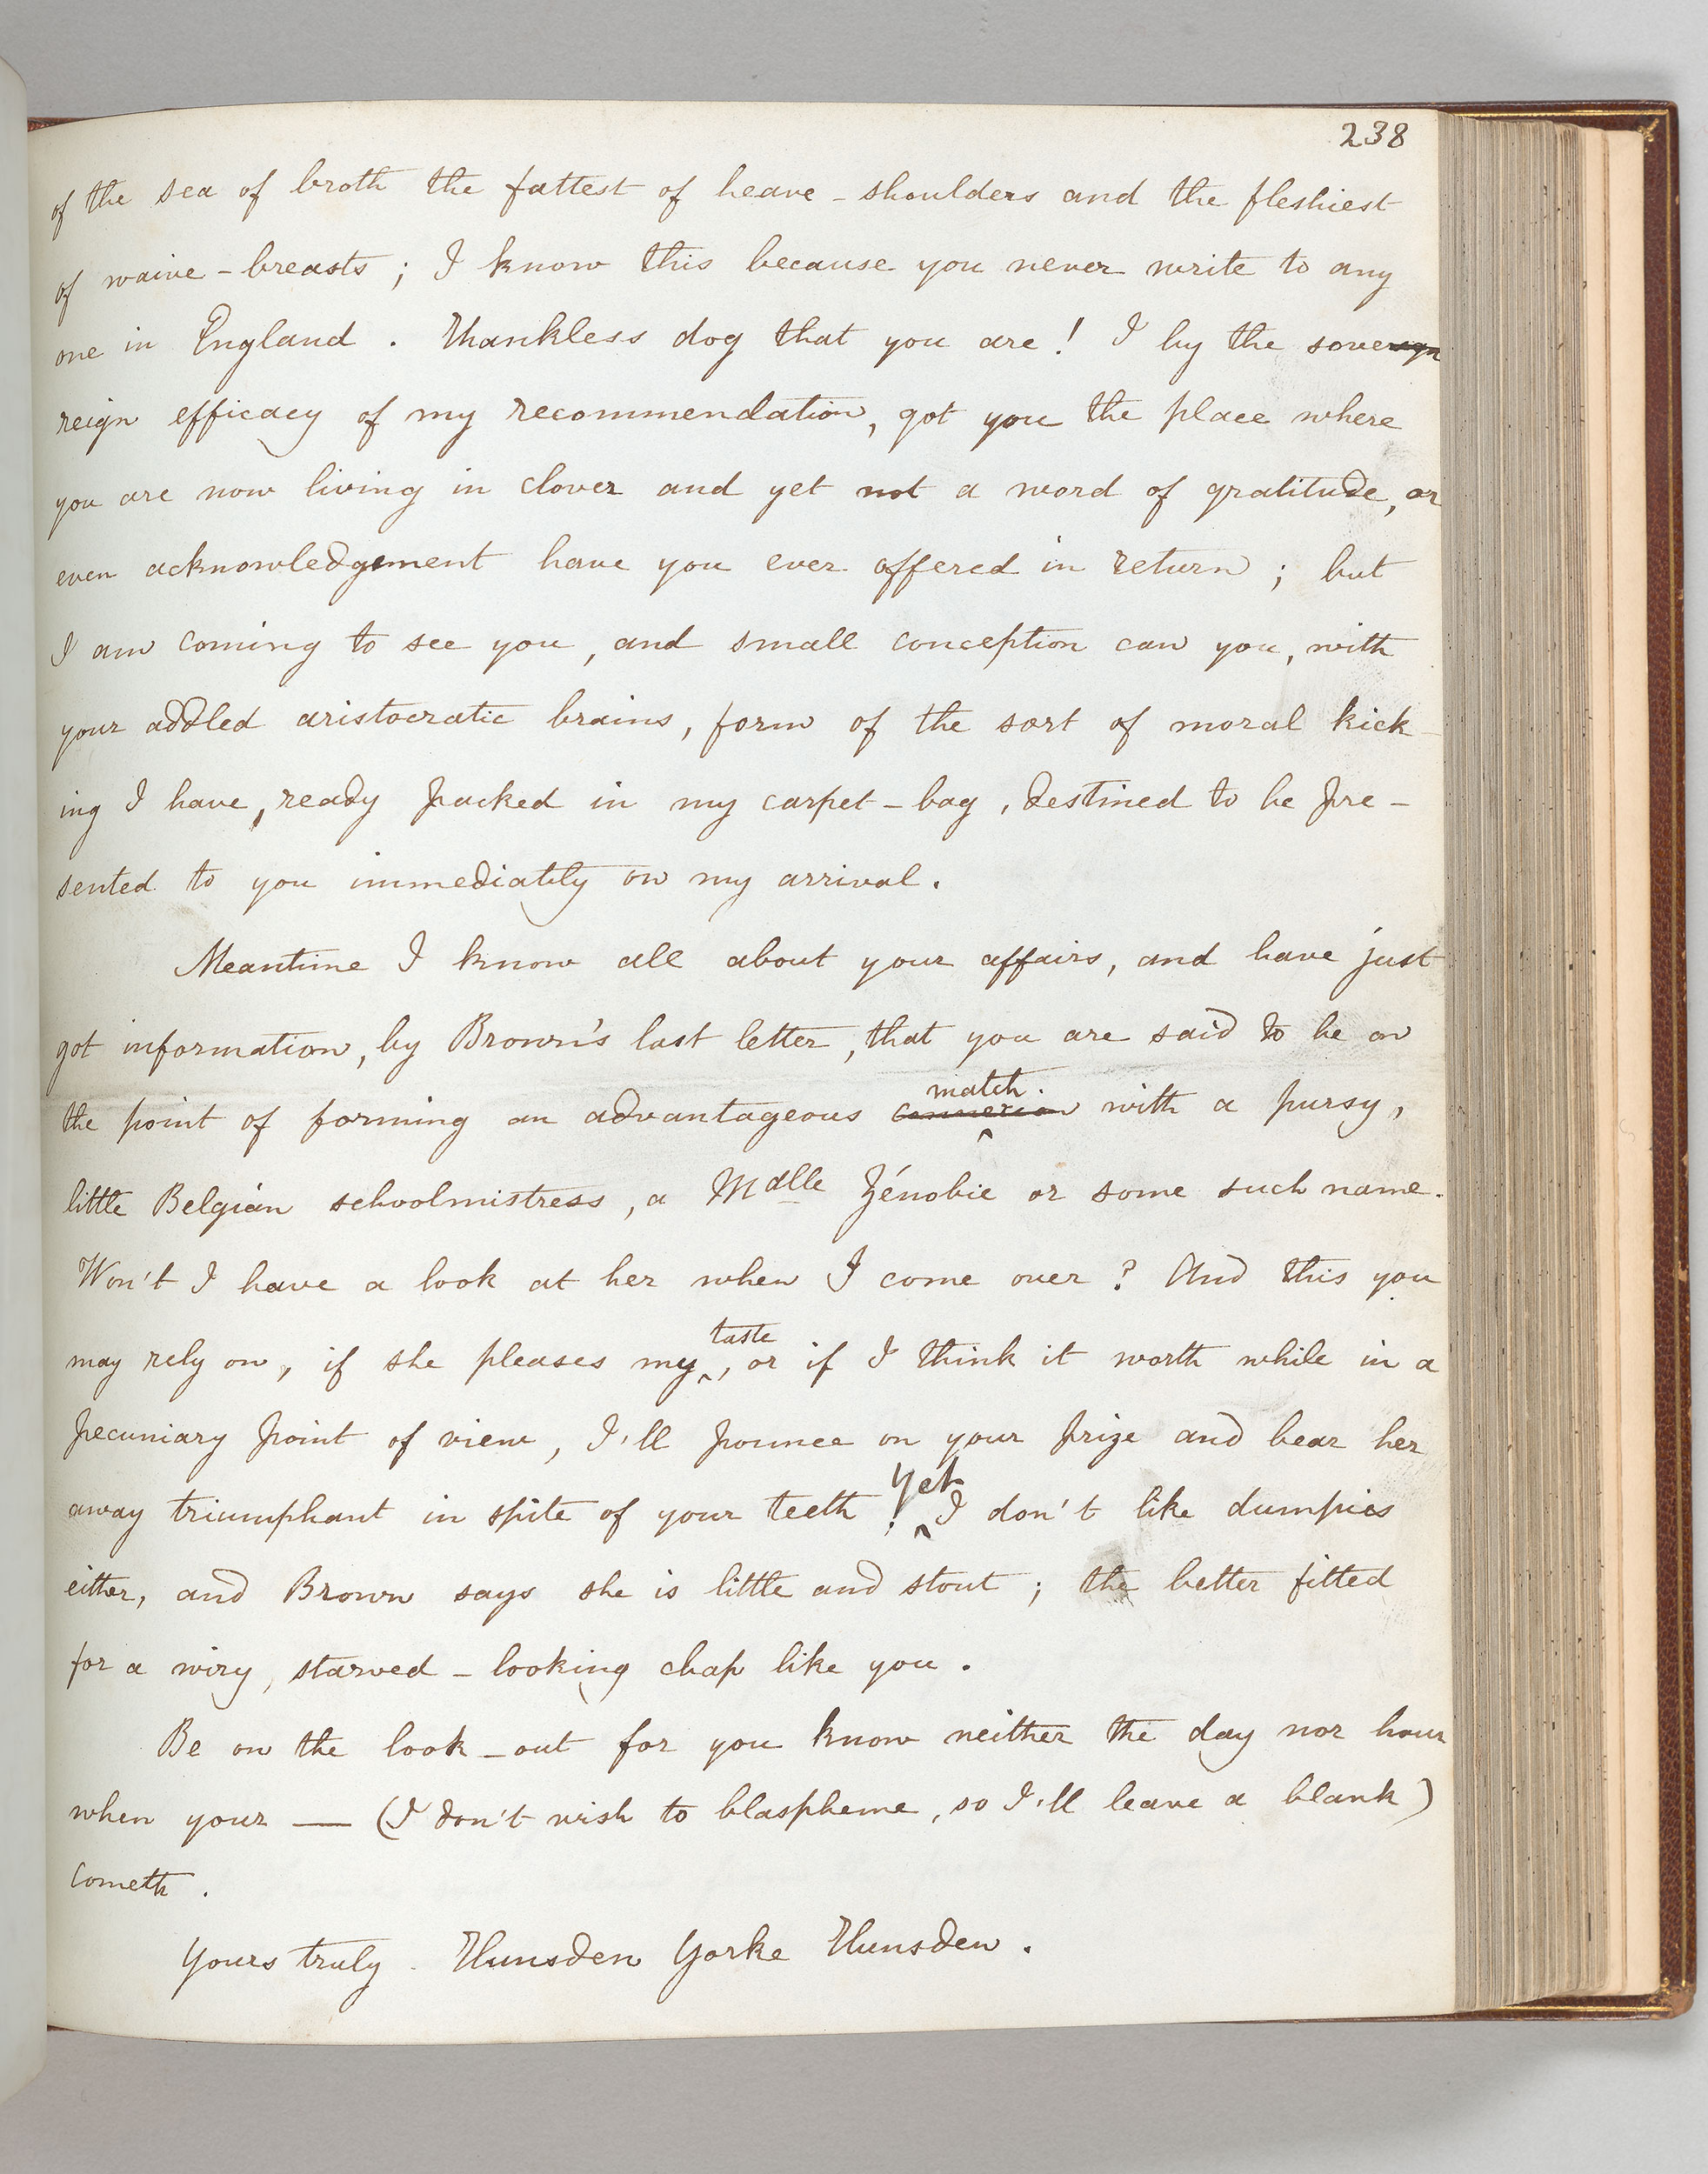 238
of the sea of broth the fattest of heave-shoulders and the fleshiest
of waive-breasts; I know this because you never write to any
one in England. Thankless dog that you are! I by the sove
reign efficacy of my recommendation, got you the place where
you are now living in clover and yet not a word of gratitude, or
even acknowledgement have you ever offered in return; but
I am coming to see you, and small conception can you, with
your addled aristocratic brains, form of the sort of moral kick-
ing I have, ready packed in my carpet-bag, destined to be pre-
sented to you immediately on my arrival.
Meantime I know all about your affairs, and have just
got information, by Brown's last letter, that you are said to be on
match.
the point of forming an advantageous connexion with a pursy,
little Belgian schoolmistress, a Mdlle Zénobie or some such name.
Won't I have a look at her when I come over? And this you
taste
may rely on, if she pleases my, or if I think it worth while in a
pecuniary point of view, I'll pounce on your prize and bear her
Yet
away triumphant in spite of your teeth! I don't like dumpies
either, and Brown says she is little and stout; the better fitted
for a wiry, starved-looking chap like you.
Be on the look-out for you know neither the day nor hour
when your — (I don't wish to blaspheme, so I'll leave a blank)
cometh.
Yours truly. Hunsden Yorke Hunsden.